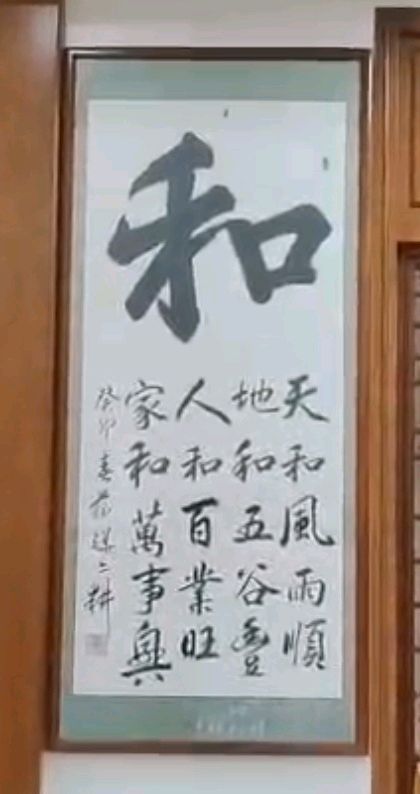 和
天和風雨順
地和五谷豊
人和百業旺
家和萬事興
癸卯春